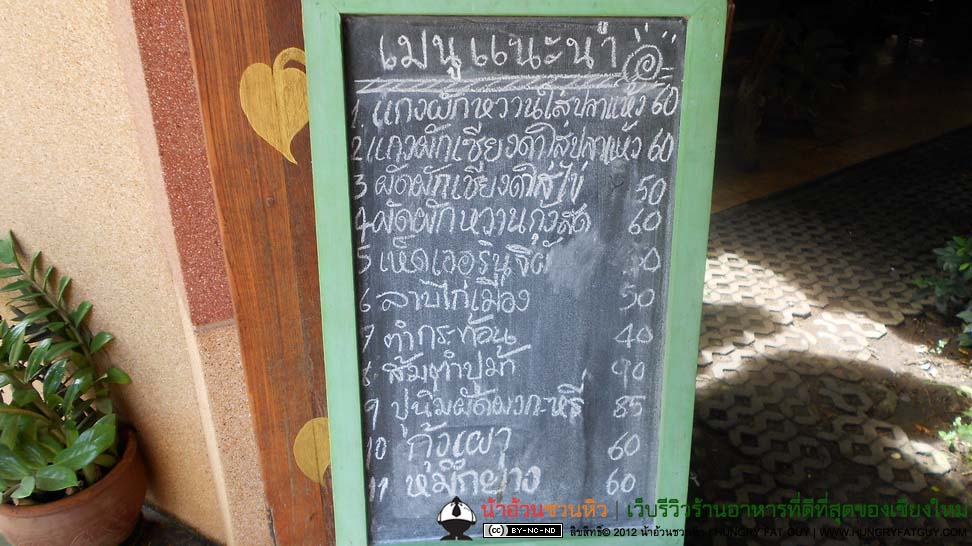 เมนูแนะนำ
1. แกงผักหวานใส่ปลาแห้ง 60
2. แกงผักเชียงดาใส่ปลาแห้ง 60
3 ผัดผักเชียงดาใส่ไข่ 50
4 ผัดผักหวานกุ้งสด 60
5 เห็ดเออรินจิ
6 ลาบไก่เมือง 50
7 ตำกระท้อน 40
8 ส้มตำปูม้า 90
9 ปูนิ่มผัดผงกะหรี่ 85
10 กุ้งเผา 60
11 หมึกย่าง 60
น้าอ้วนชวนหิว | เว็บรีวิวร้านอาหารที่ดีที่สุดของเชียงใหม่
CC BY-NC-ND ลิขสิทธิ์© 2012 น้าอ้วนชวนหิว | HUNGRY FAT GUY | WWW.HUNGRYFATGUY.COM